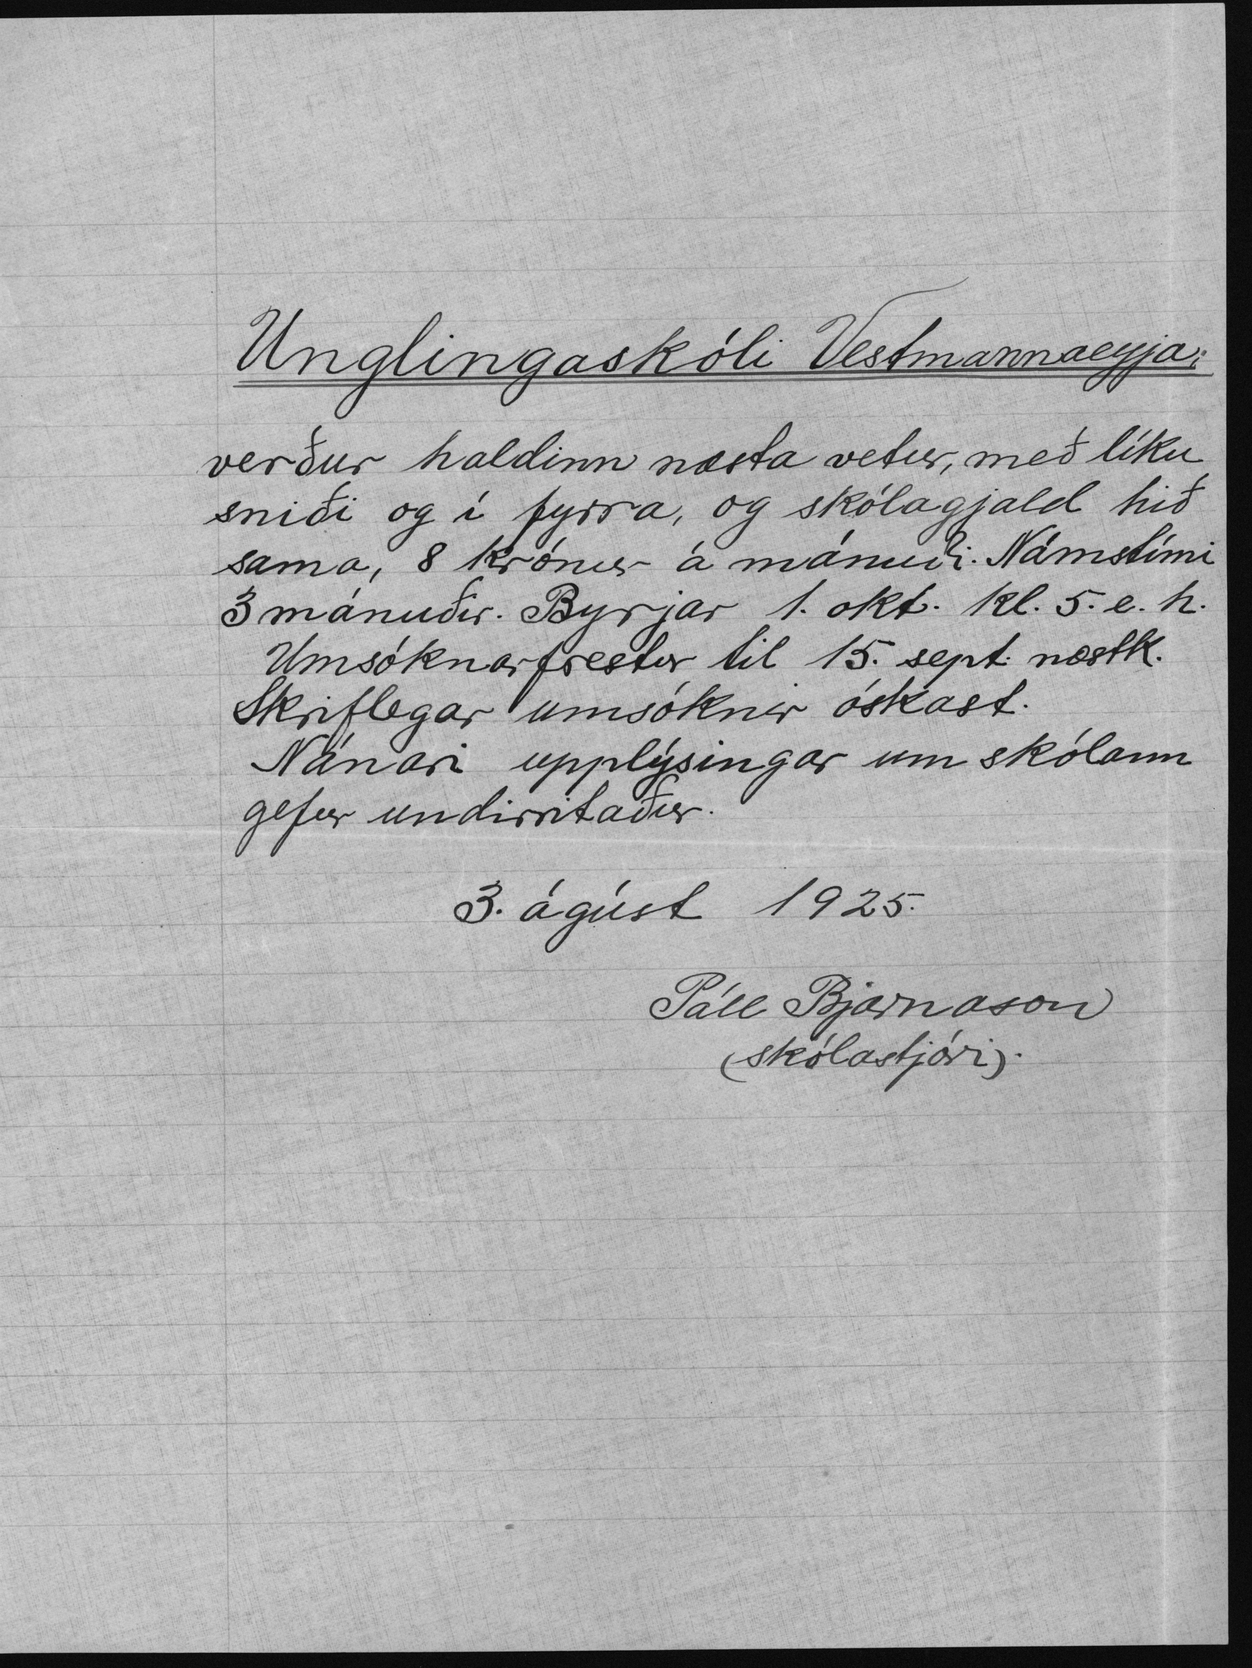 Unglingaskóli Vestmannaeyja:
verður haldinn næsta vetur, með líku
sniði og í fyrra, og skólagjald hið
sama, 8 krónur á mánuði. Námstími
3 mánuðir. Byrjar 1. okt. kl. 5. e. h.
Umsóknarfrestur til 15. sept. næstk.
Skriflegar umsóknir óskast.
Nánari upplýsingar um skólann
gefur undirritaður.
3. ágúst 1925.
Páll Bjarnason
(skólastjóri).